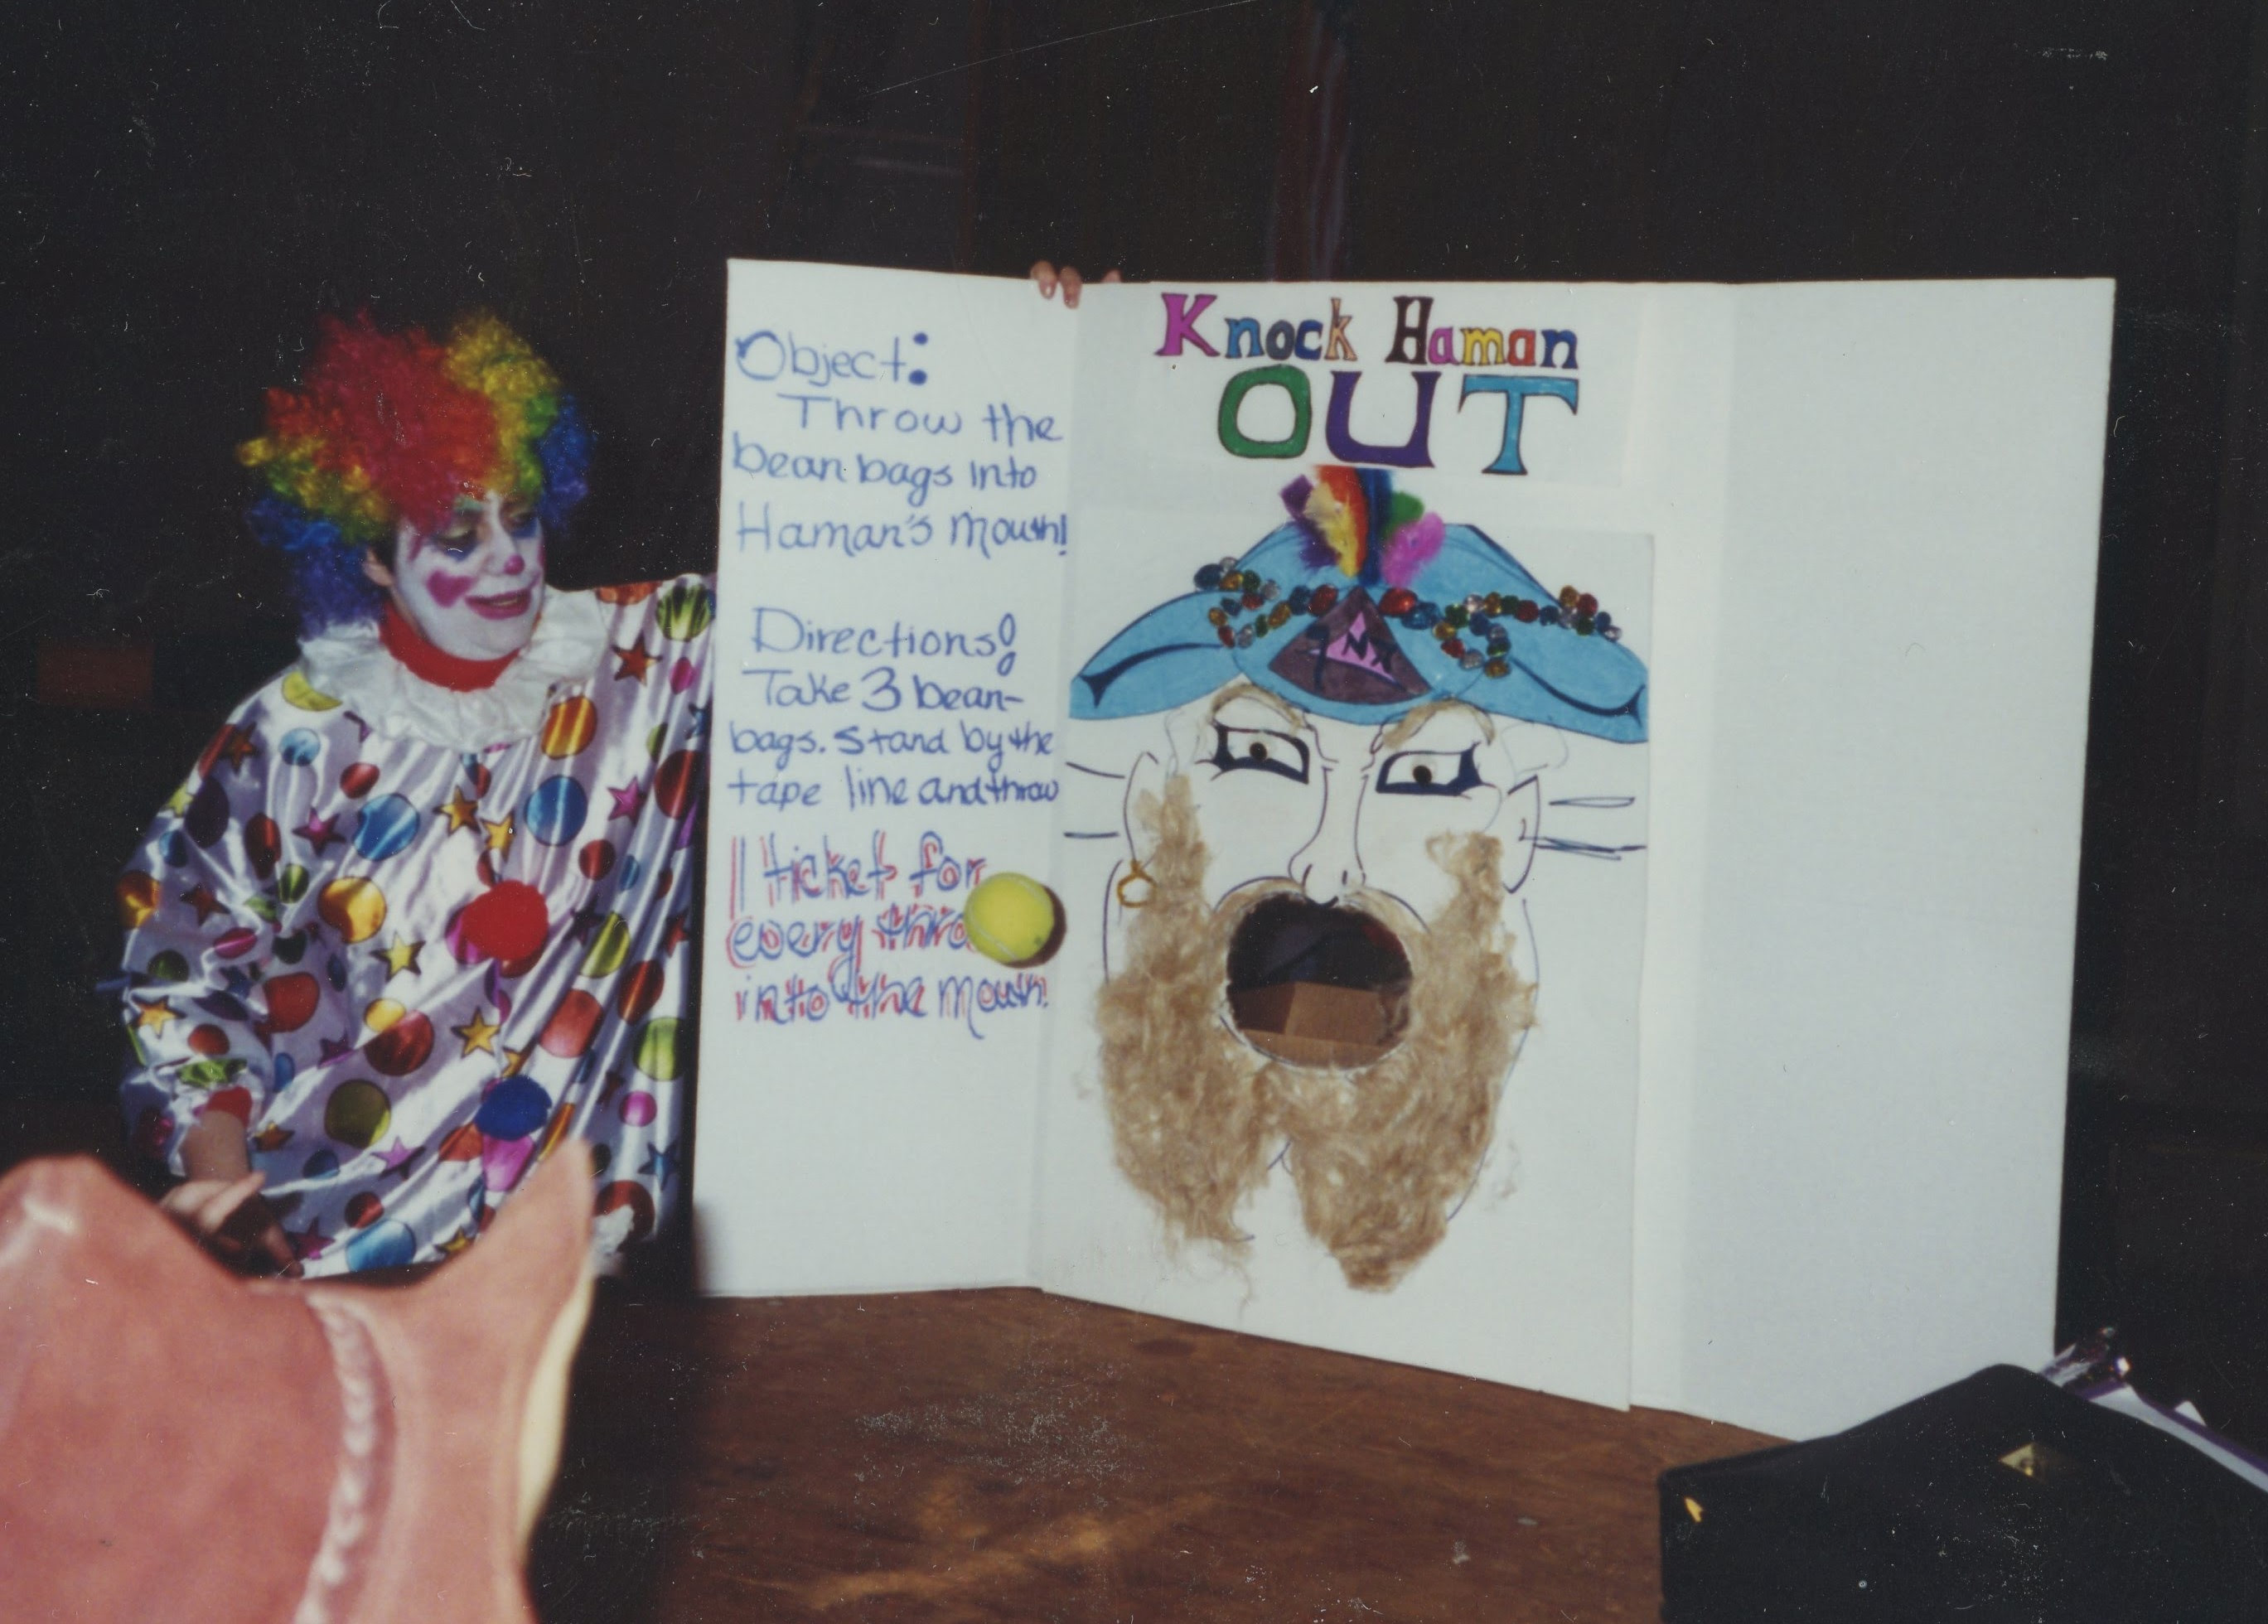 Object:
Throw the
bean bags into
Haman's Mouth!
Directions!
Take 3 bean-
bags. Stand by the
tape line and throw
1 ticket for
every thro
into the mouth!
Knock Haman
OUT